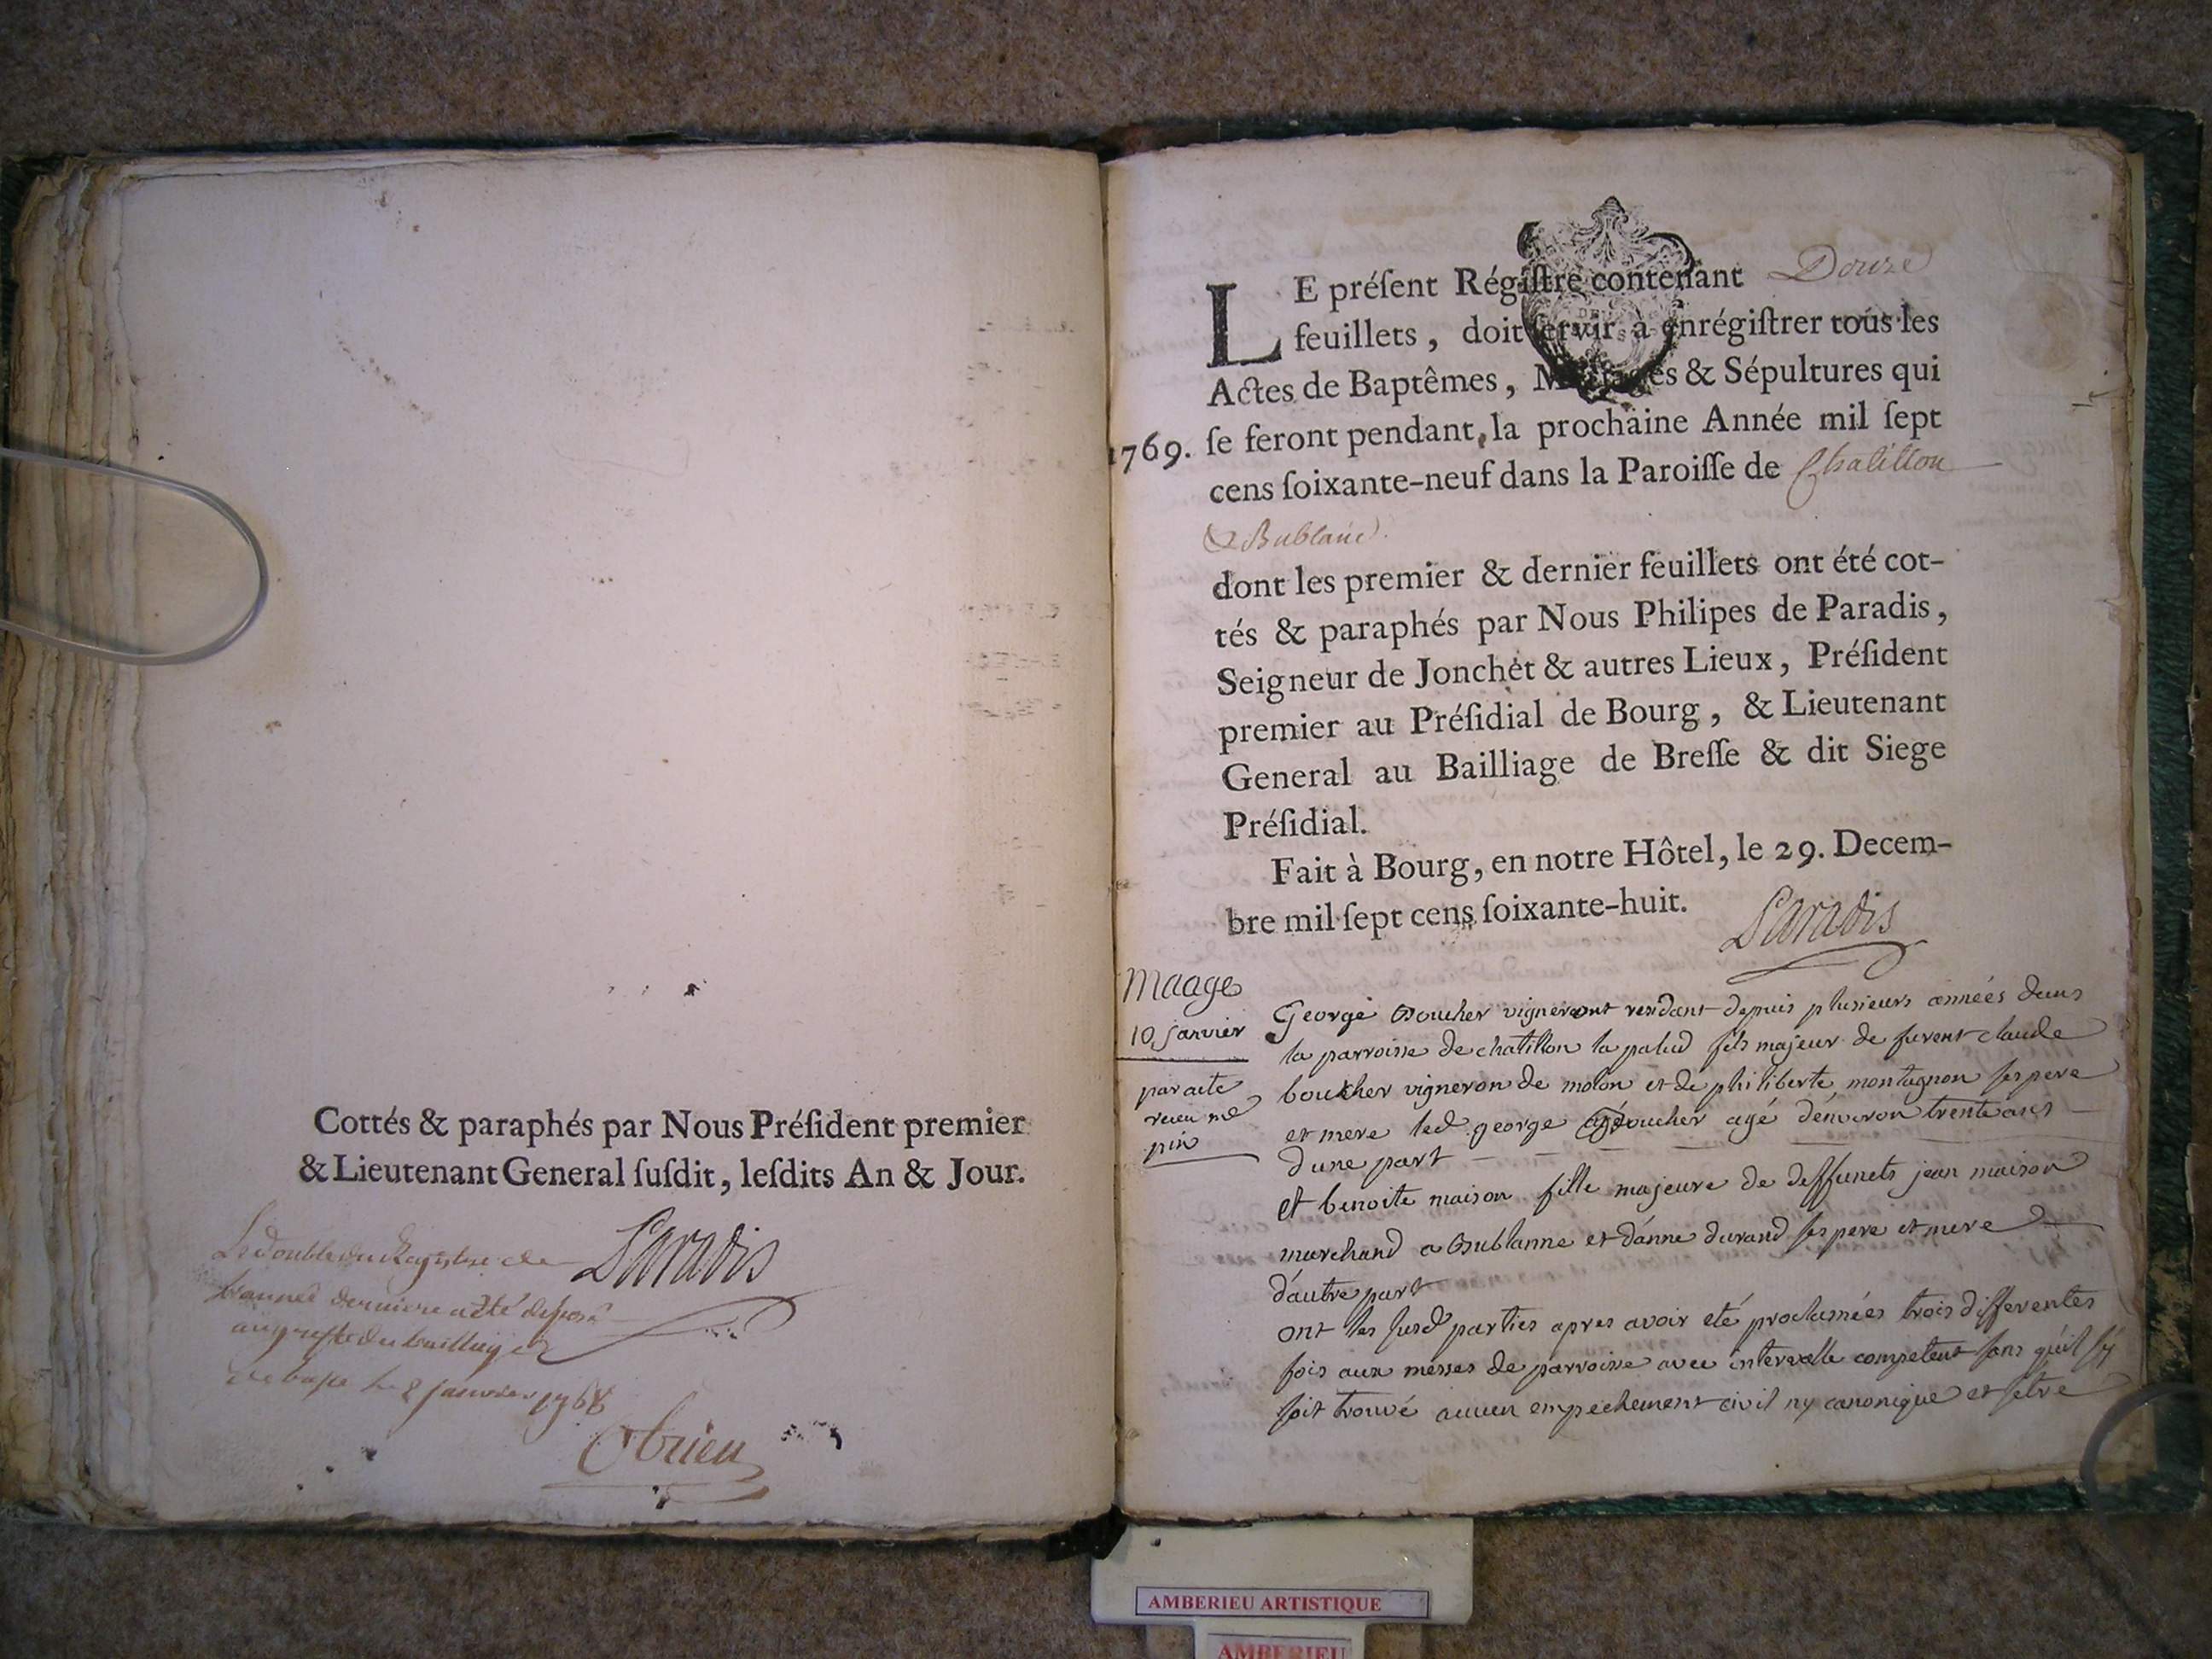 Cottés & paraphés par Nous Préſident premier
& Lieutenant General ſuſdit, leſdits An & Jour.
Paradis
Le double du Registre de
l'année derniere a été deposé
au greffe du bailliage
de bresse le 8 janvier 1768
LE préſent Régiſtre contenant Douze
feuillets, doit ſervir à enrégiſtrer tous les
Actes de Baptêmes, Mariages & Sépultures qui
1769. ſe feront pendant la prochaine Année mil ſept
cens ſoixante-neuf dans la Paroiſſe de Chatillon
& Bublane.
dont les premier & dernier feuillets ont été cot-
tés & paraphés par Nous Philipes de Paradis,
Seigneur de Jonchet & autres Lieux, Préſident
premier au Préſidial de Bourg, & Lieutenant
General au Bailliage de Breſſe & dit Siege
Préſidial.
Fait à Bourg, en notre Hôtel, le 29. Decem-
bre mil ſept cens ſoixante-huit.
Paradis
Maage
10 janvier
par acte
receu me
pin
George Boucher vigneront residant depuis plusieurs années dans
la parroisse de chatillon la palud fils majeur de furent claude
boucher vigneron de molon et de philiberte montagnon ses pere
et mere led george boucher agé d'environ trente ans
d'une part
et benoite maison fille majeure de deffunets jean maison
marchand a Bublanne et d'anne durand ses pere et mere
d'autre part
ont les susd parties apres avoir eté proclamées trois differentes
fois aux messes de parroisse avec intervalle competent sans qu'il s'y
soit trouvé aucun empechement civil ny canonique et s'etre
AMBERIEU ARTISTIQUE
AMBERIEU